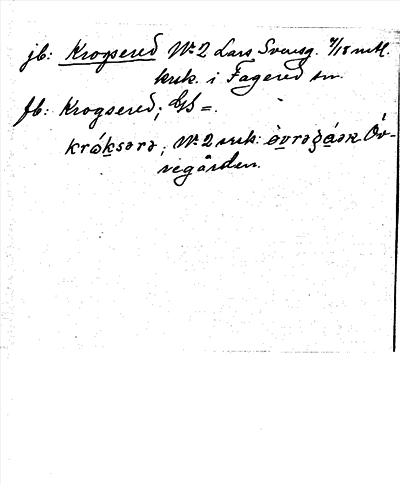 jb: Krogsered Nr 2 Lars Svensg. 7/18 mtl.
krk. i Fagered sn.
fb: Krogsered; GS =.
krὼksərə; Nr 2 urk: ὼvrəgάək Öv-
regården.